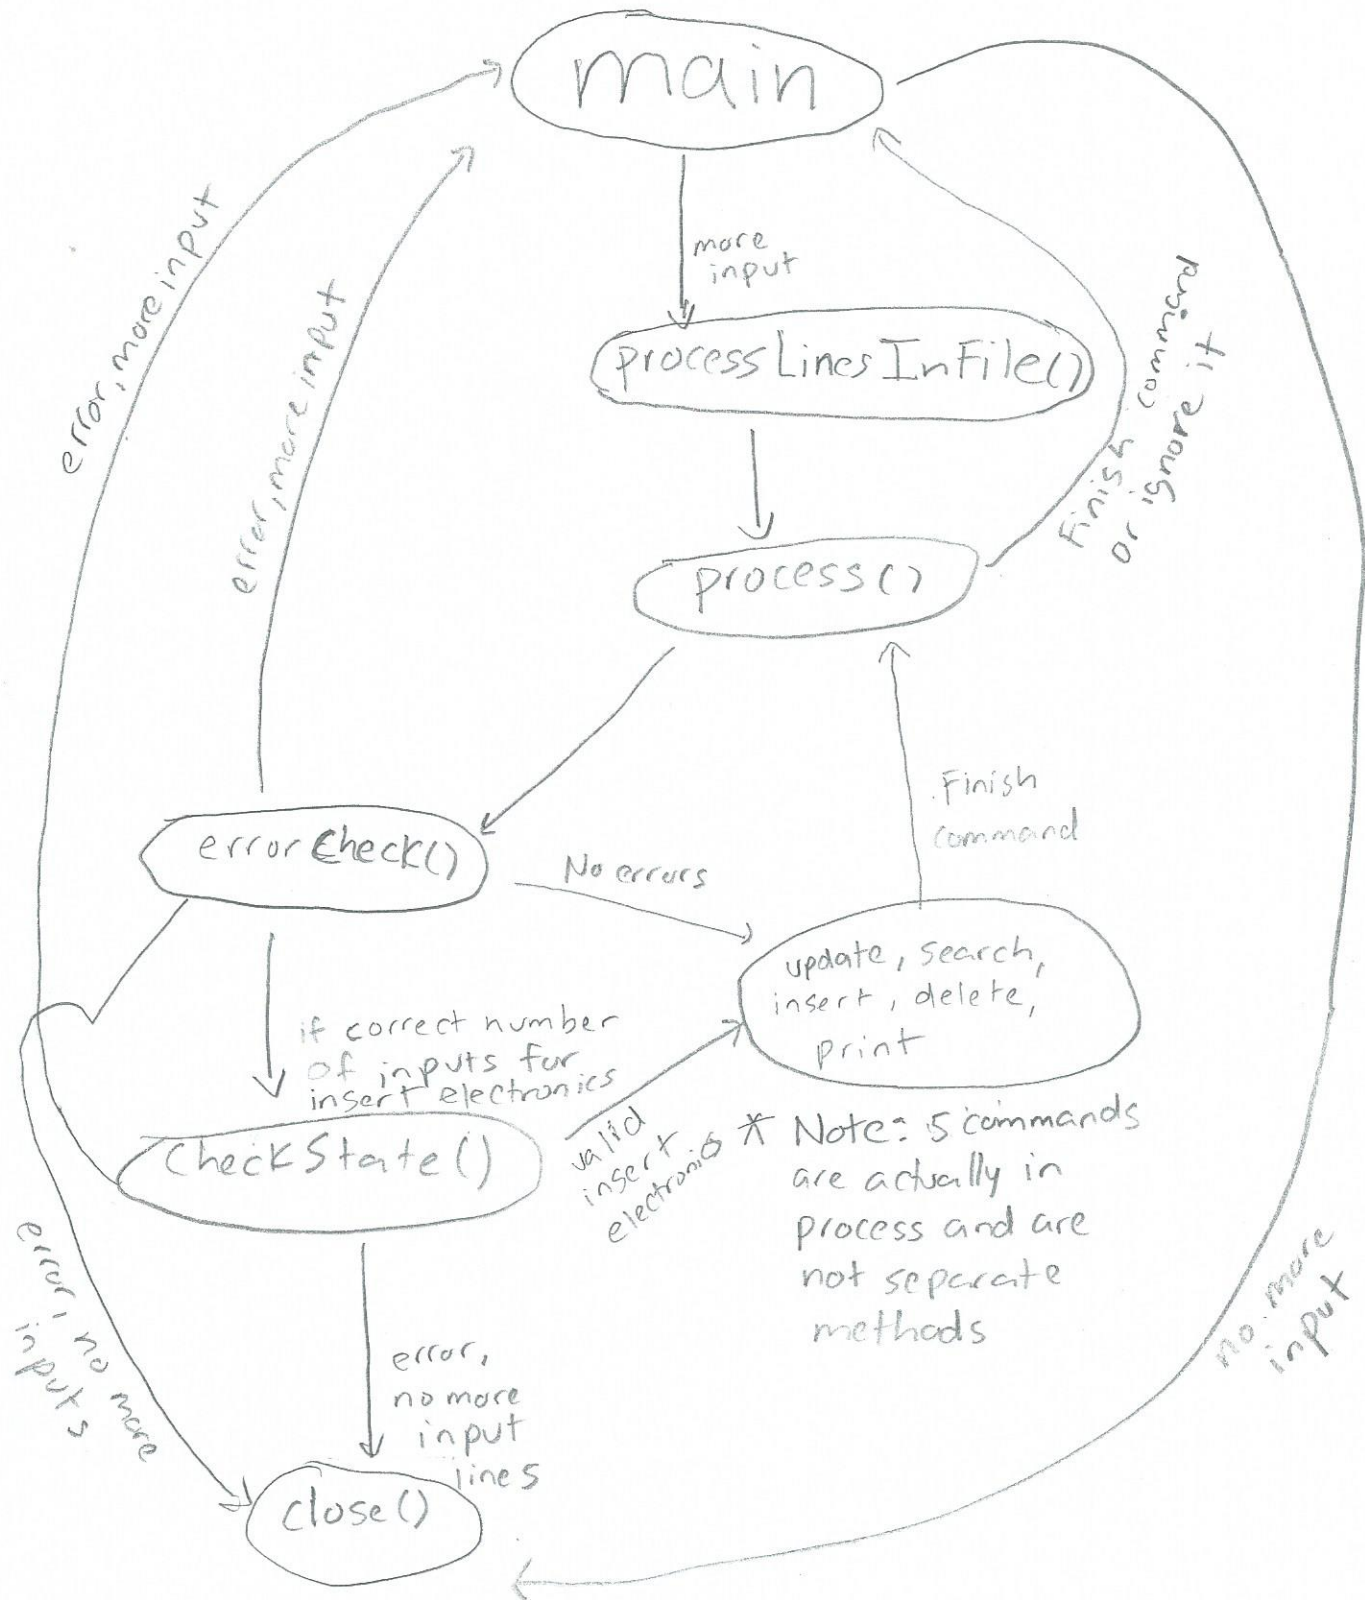 main
error, more input
error, more input
more
input
processLinesInFile()
Finish command
or ignore it
process()
Finish
command
errorCheck()
No errors
update, search,
insert, delete,
print
if correct number
of inputs for
insert electronics
CheckState()
valid
insert
electronics
* Note: 5 commands
are actually in
process and are
not separate
methods
error, no more
inputs
error,
no more
input
lines
no more
input
close()